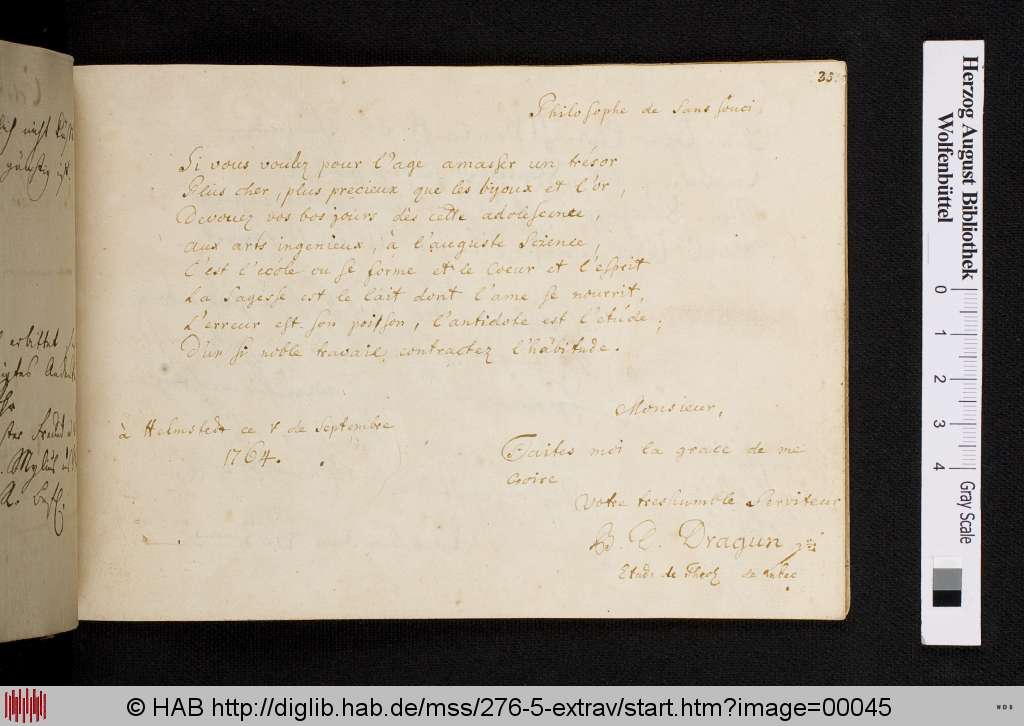 35.
Philosophe de Sans souci.
Si vous voulez pour l'age amasser un trésor
Plus cher, plus precieux que les bijoux et l'or,
Devouez vos bos jours dès cette adolescence,
Aux arts ingenieux, à l'auguste Science,
C'est l'école ou se forme et le Coeur et l'esprit
La Sagesse est le lait dont l'ame se nourrit,
L'erreur est son poison, l'antidote est l'etúde,
D'un si noble travail contractez l'hàbitude.
à Helmstedt ce de Septembre
1764.
Monsieur,
Faites moi la grace de me
croire
Votre treshumble Serviteur
Dragun
Etud: de Theol de
lich nicht
erbittet
Herzog August Bibliothek
Wolfenbüttel
0 1 2 3 4 Gray Scale
© HAB http://diglib.hab.de/mss/276-5-extrav/start.htm?image=00045
WDB